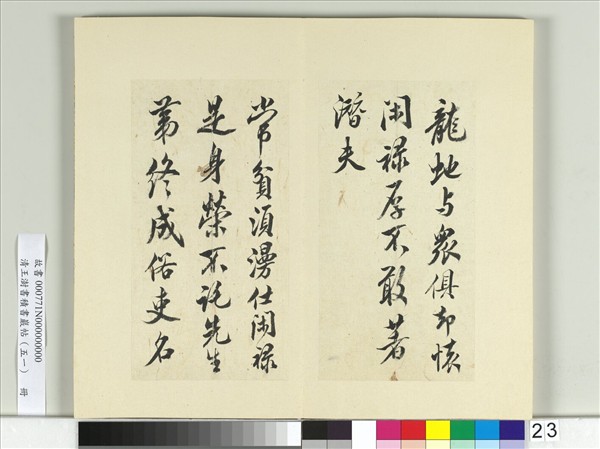 龍地与衆俱却懐
閑禄厚不敢著
潛夫
常貧須漫仕閑禄
是身榮不託先生
第終成俗吏名
故書 000771N000000000
清王澍書積書巖帖（五一） 冊
23